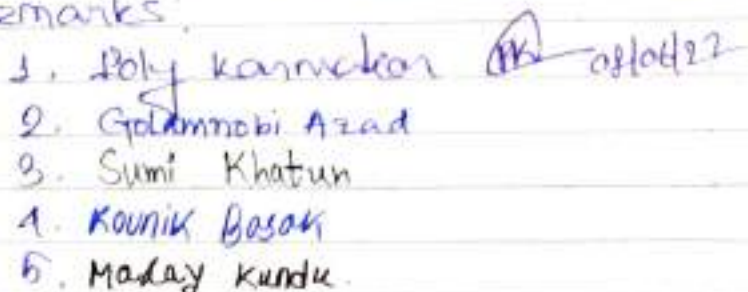 emarks.
1. Poly Karmakar PK 08/06/22
2. Golamnobi Azad
3. Sumi Khatun
4. Kounik Basak
5. Malay Kundu.